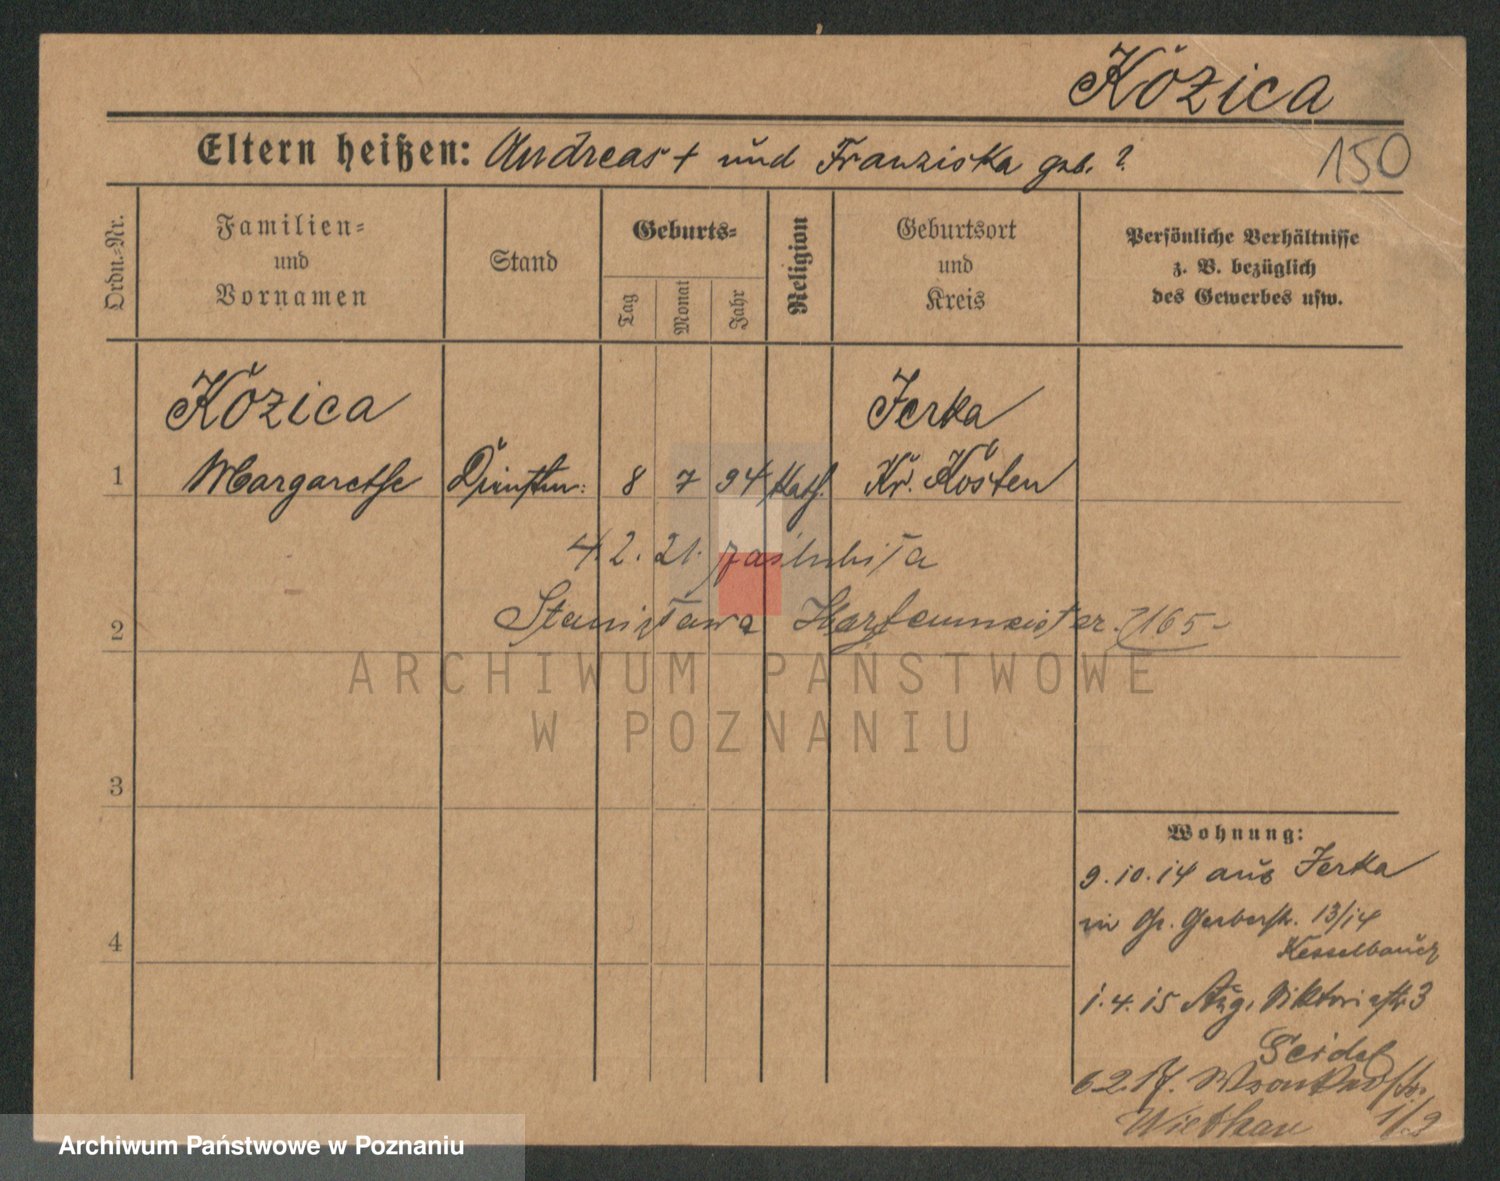 Kózica
Eltern heißen: Andreas + und Franziska geb. ?
150
Ordn.=Nr.
Familien=
und
Vornamen
Stand
Geburts=
Tag
Monat
Jahr
Religion
Geburtsort
und
Kreis
Persönliche Verhältnisse
z. B. bezüglich
des Gewerbes usw.
Kózica
Jerka
1 Margarethe Dienstm: 8 7 94 Kath. Kr. Kosten
4.2.21. zaślubiła
2 Stanisława Harfenmeister 165-
ARCHIWUM PAŃSTWOWE
W POZNANIU
3
4
Wohnung:
9.10.14 aus Jerka
in Gr. Gerberstr. 13/14
1.4.15 Aug. Viktoriastr. 3
Seidel
6 2.17. Wronkerstr.
1/2
Archiwum Państwowe w Poznaniu